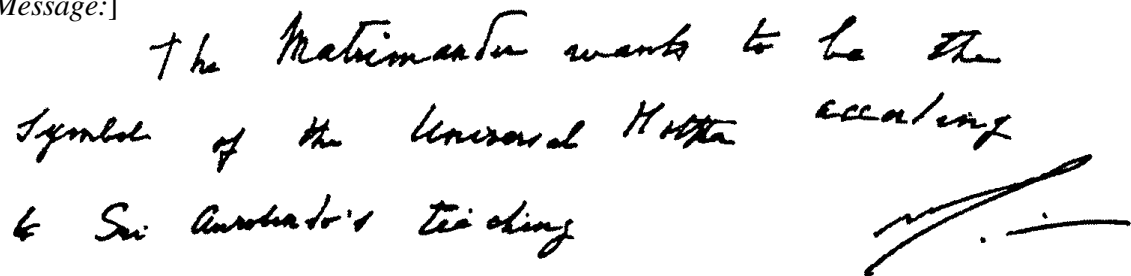 Message:]
The Matrimandir wants to be the
symbol of the Universal Mother according
to Sri Aurobindo's teaching